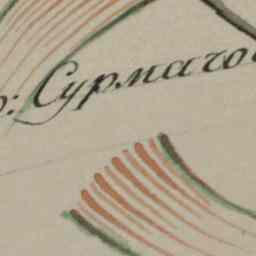 о: Сурмачо